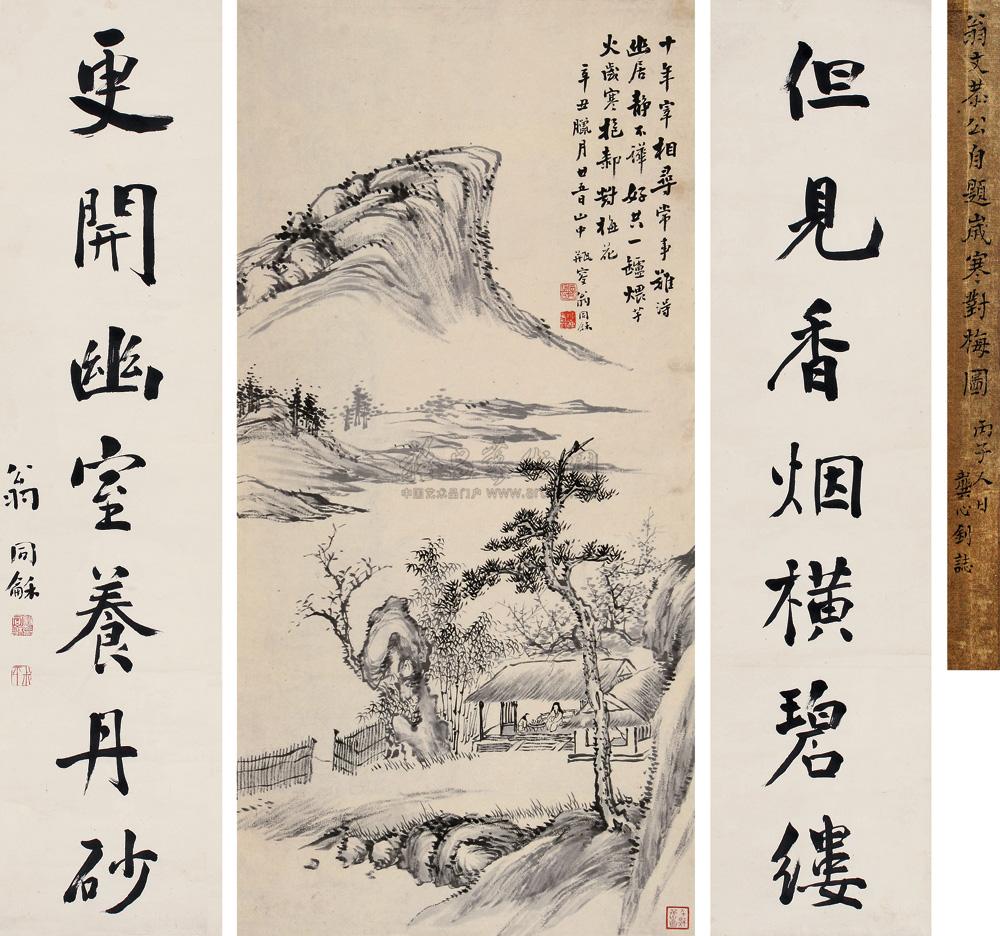 翁文恭公自題嵗寒對梅圖
丙子人日
龔心釗誌
但見香烟橫碧縷
十年宰相尋常事難得
幽居靜不譁好共一罏煨芋
火歲寒對梅花
辛丑臘月廿五日山中瓶翁同龢
中国艺术品门户
更開幽室養丹砂
翁同龢